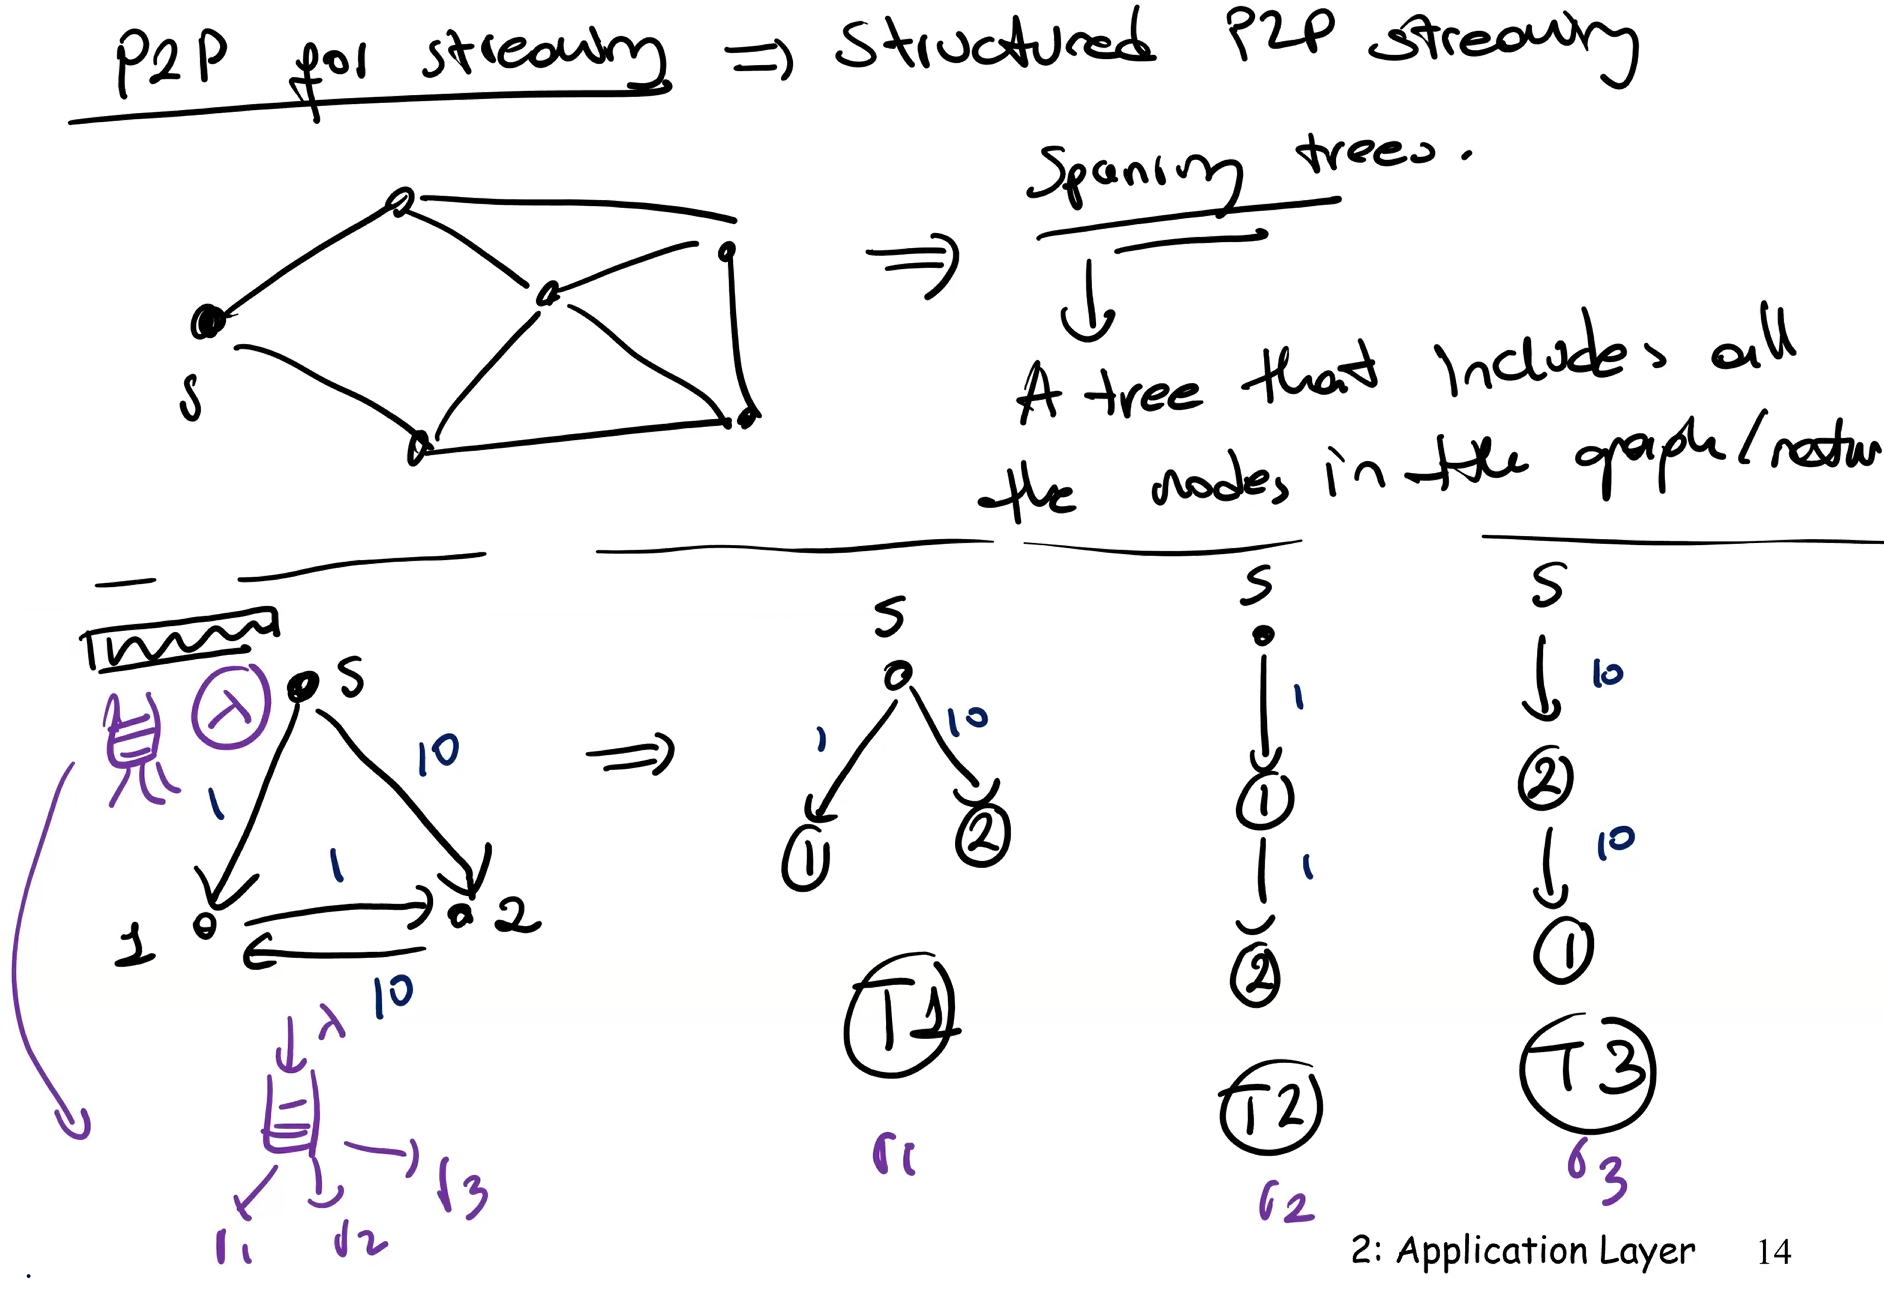 P2P for streaming ⇒ Structured P2P streaming
Spaning trees.
A tree that includes all
the nodes in the graph/netw
S
S
S
S
S
λ
1
10
1
10
1
2
1
10
1
2
1
1
1
2
10
2
10
1
T1
T2
T3
λ
r1
r2
r3
r1
r2
r3
2: Application Layer 14